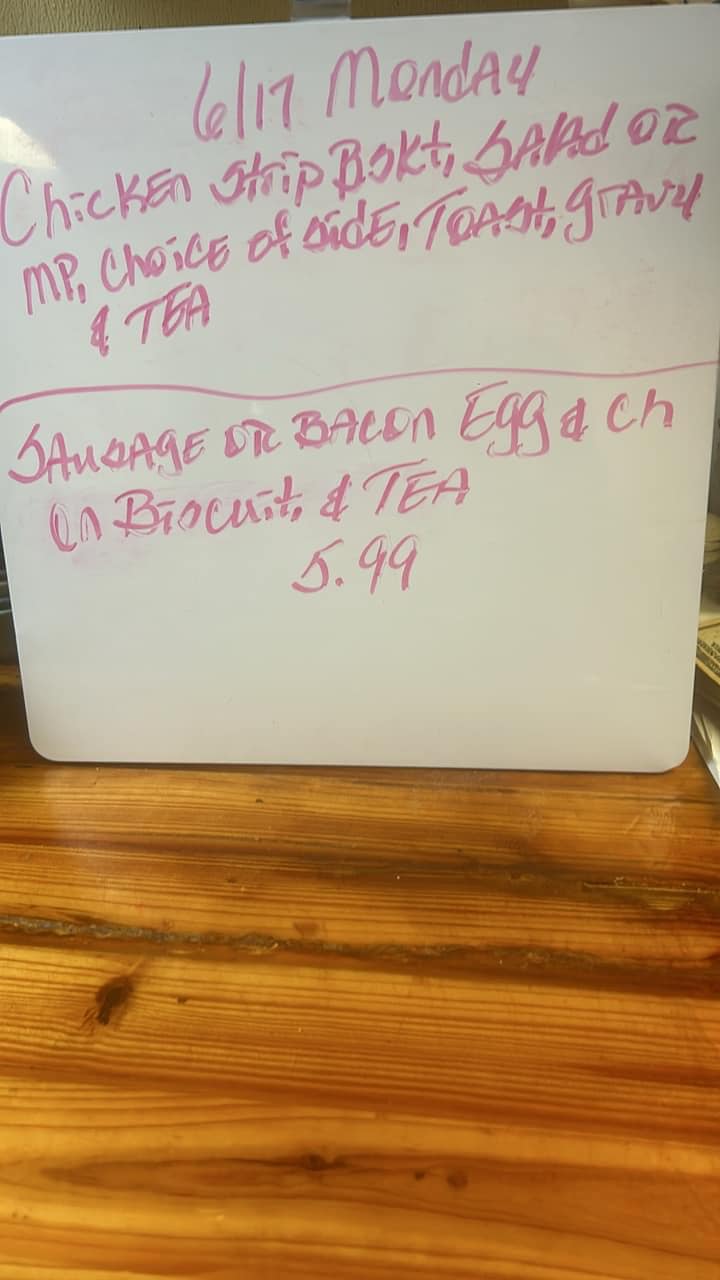 6/17 Monday
Chicken Strip Bskt, Salad or
MP, Choice of side, Toast, gravy
& TEA
Sausage or Bacon Egg & Ch
On Biscuit, & TEA
5.99